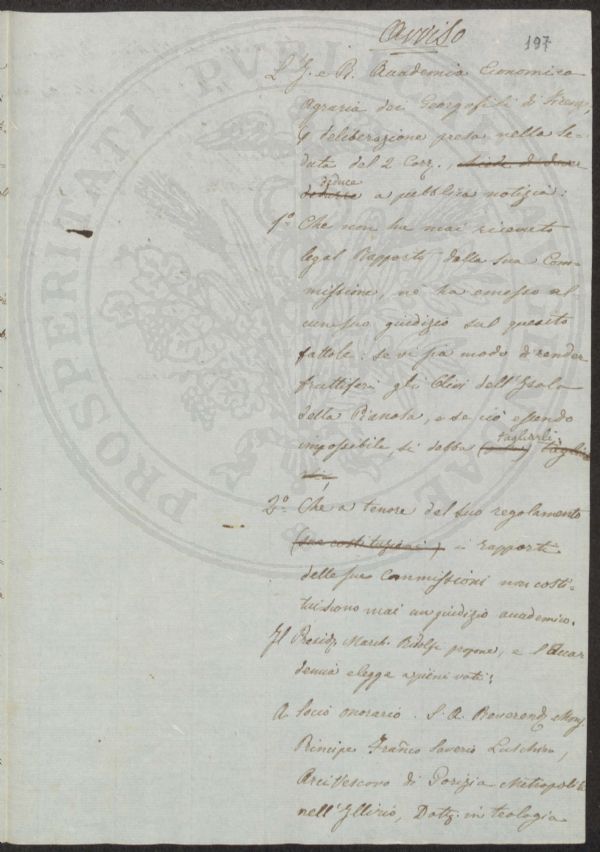 Avviso
197
L'I. e R. Accademia Economico
Agraria dei Georgofili di Firenze,
deliberazione presa nella Se-
duta del 2 Corr.,
deduce
a pubblica notizia:
1.° Che non ha mai ricevuto
legal Rapporto dalla sua Com-
missione, nè ha emesso al-
cun suo giudizio sul quesito
fattole: se vi sia modo di render
fruttiferi gli Olivi dell'Isola
della Pianosa, e se ciò essendo
impossibile si debba tagliarli
2.° Che a tenore del suo regolamento
(sue costituzioni) i rapporti
delle sue Commissioni non costi-
tuiscono mai un giudizio accademico.
Il Presid. March. Ridolfi propone, e l'Acca-
demia elegge a pieni voti:
A Socio onorario. S. A. Reverend. Mons.
Principe Franc.o Saverio Luschin,
Arcivescovo di Gorizia Metropolit.
nell'Illirio, Dott. in teologia
PROSPERITATI PUBLICAE AUGENDAE